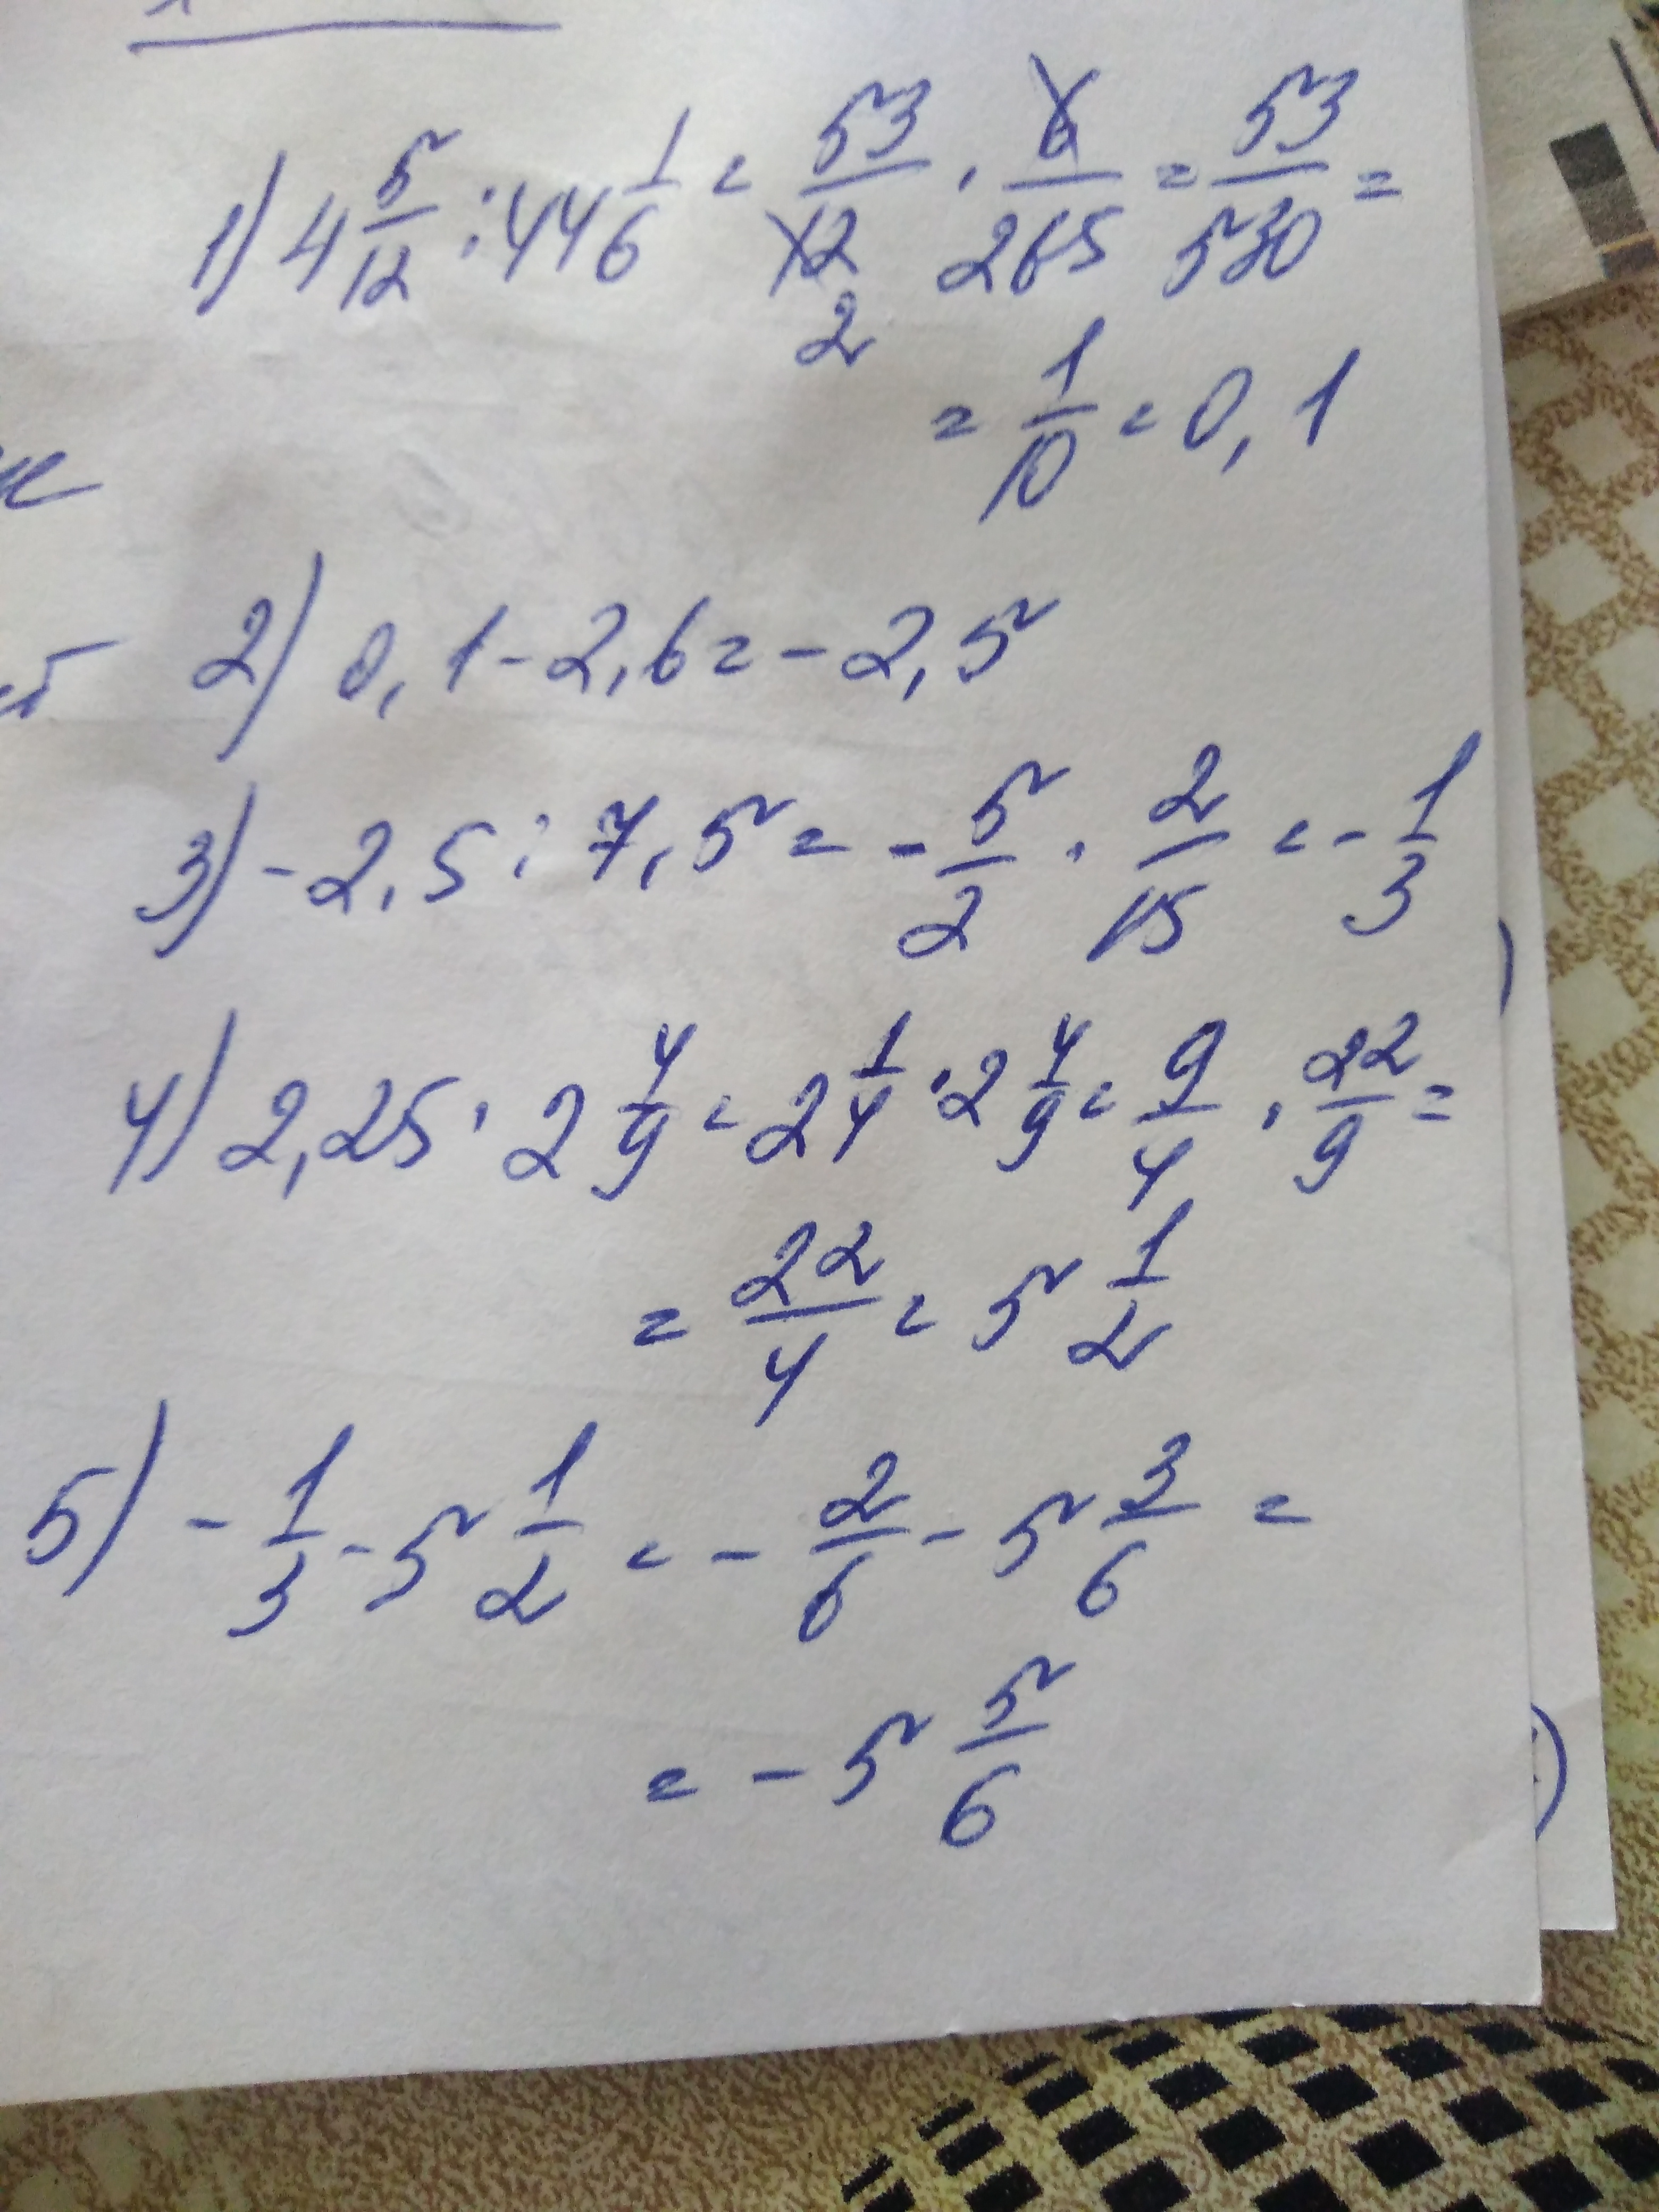 1) 4 5/12 : 44 1/6 = 53/12 · 6/265 = 53/530 =
2
= 1/10 = 0,1
2) 0,1 - 2,6 = - 2,5
3) - 2,5 : 7,5 = - 5/2 · 2/15 = - 1/3
4) 2,25 · 2 4/9 = 2 1/4 · 2 4/9 = 9/4 · 22/9 =
= 22/4 = 5 1/2
5) - 1/3 - 5 1/2 = - 2/6 - 5 3/6 =
= - 5 5/6